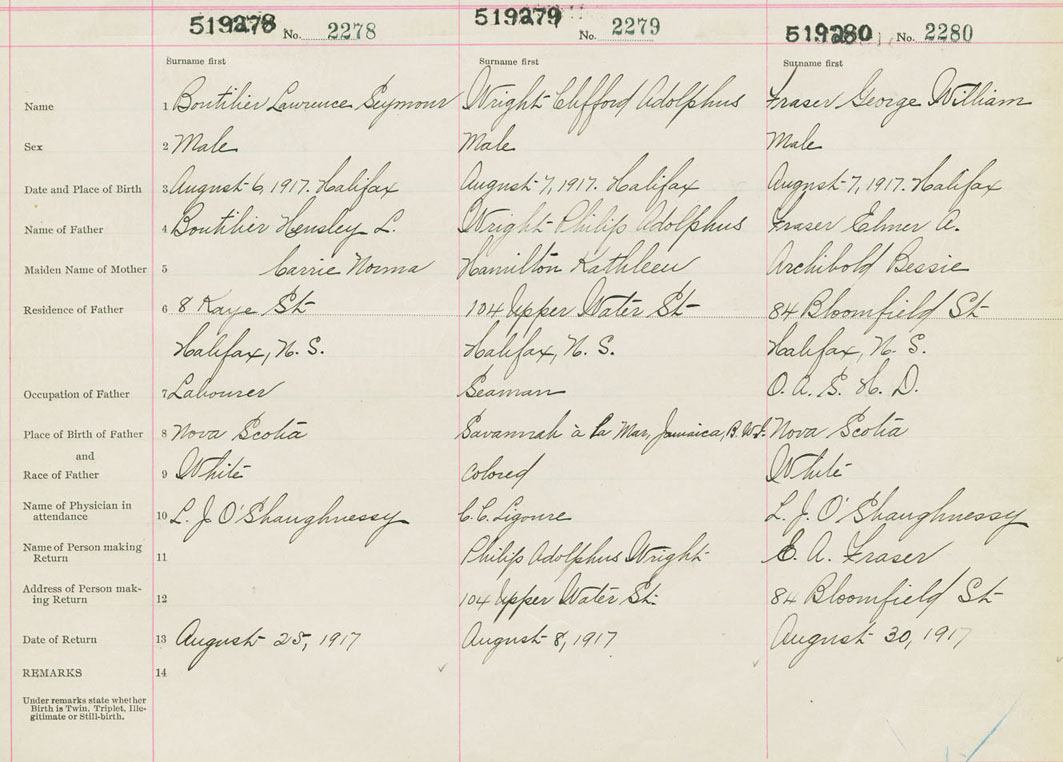 519278 No. 2278 519279 No. 2279 519280 No. 2280
Surname first Surname first Surname first
Name 1 Boutilier Lawrence Seymour Wright Clifford Adolphus Fraser George William
Sex 2 Male Male Male
Date and Place of Birth 3 August 6, 1917. Halifax August 7, 1917. Halifax August 7, 1917. Halifax
Name of Father 4 Boutilier Hensley L. Wright Philip Adolphus Fraser Elmer A.
Maiden Name of Mother 5 Carrie Norma Hamilton Kathleen Archibold Bessie
Residence of Father 6 8 Kaye St 104 Upper Water St 84 Bloomfield St
Halifax, N. S. Halifax, N. S. Halifax, N. S.
Occupation of Father 7 Labourer Seaman O. A. S. H. D.
Place of Birth of Father 8 Nova Scotia Savannah à la Mar, Jamaica, B.W.I. Nova Scotia
and
Race of Father 9 White Colored White
Name of Physician in
attendance 10 L. J. O'Shaughnessy C. C. Ligoure L. J. O'Shaughnessy
Name of Person making
Return 11 Philip Adolphus Wright E. A. Fraser
Address of Person mak-
ing Return 12 104 Upper Water St. 84 Bloomfield St
Date of Return 13 August 25, 1917 August 8, 1917 August 30, 1917
REMARKS 14
Under remarks state whether
Birth is Twin, Triplet, Ille-
gitimate or Still-birth.